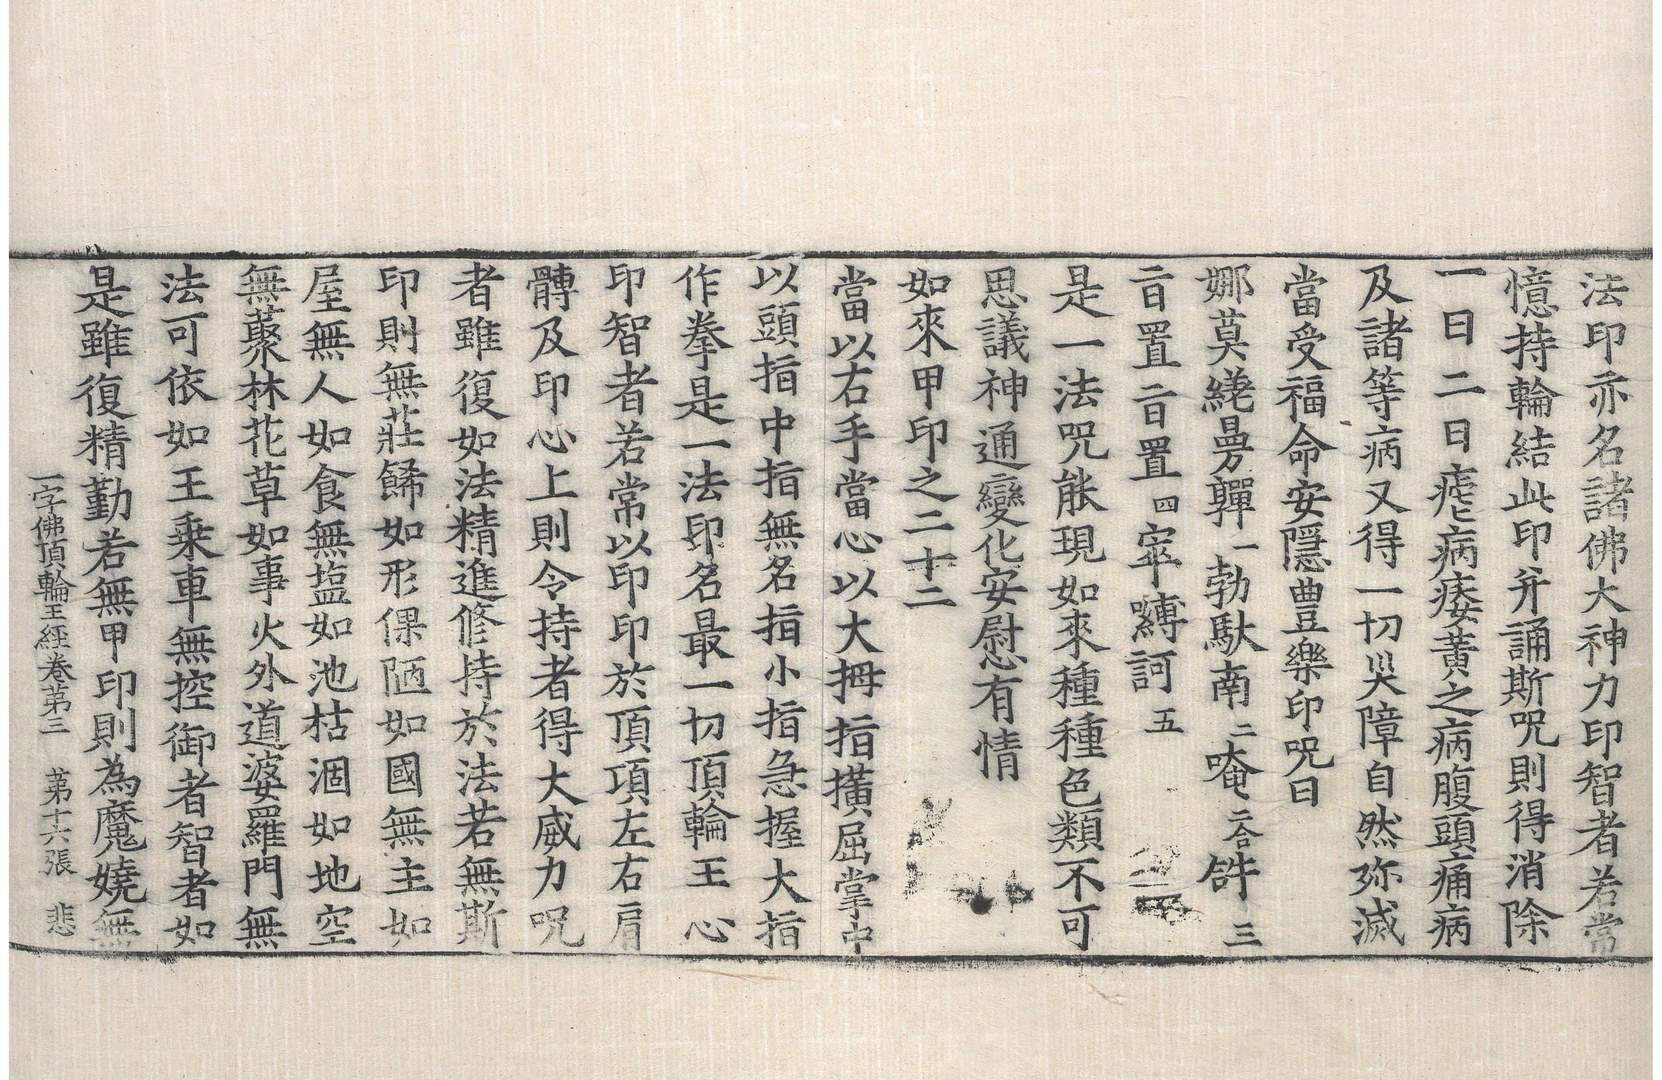 法印亦名諸佛大神力印智者若常
憶持輪結此印并誦斯呪則得消除
一日二日瘧病痿黃之病腹頭痛病
及諸等病又得一切災障自然弥滅
當受福命安隱豊樂印呪曰
娜莫繞曼嚲一勃馱南二唵二合𤙖三
亖置亖置四窣嚩訶五
是一法呪能現如來種種色類不可
思議神通變化安慰有情
如來甲印之二十二
當以右手當心以大拇指撗屈掌中
以頭指中指無名指小指急握大指
作拳是一法印名最一切頂輪王心
印智者若常以印印於頂項左右肩
髆及印心上則令持者得大威力呪
者雖復如法精進修持於法若無斯
印則無莊餙如形倮陋如國無主如
屋無人如食無塩如池枯涸如地空
無藂林花草如事火外道婆羅門無
法可依如王乗車無控御者智者如
是雖復精勤若無甲印則為魔嬈無
一字佛頂輪王經卷第三　第十六張　悲